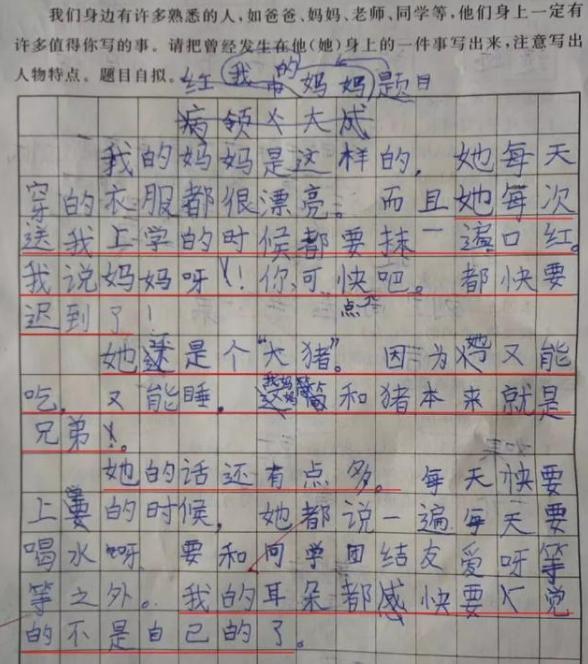 我们身边有许多熟悉的人，如爸爸、妈妈、老师、同学等，他们身上一定有
许多值得你写的事。请把曾经发生在他（她）身上的一件事写出来，注意写出
人物特点。题目自拟。
红 我的妈妈 题目
我的妈妈是这样的，她每天
穿的衣服都很漂亮。而且她每次
送我上学的时候都要抹一遍口红。
我说妈妈呀！你可快点吧。都快要
迟到了！
她还是个“大猪”。因为她又能
吃，又能睡。我妈妈和猪本来就是
兄弟。
她的话还有点多。每天快要
上学的时候，她都说一遍每天要
喝水呀 要和同学团结友爱呀等
等之外。我的耳朵都感快要觉
的不是自己的了。